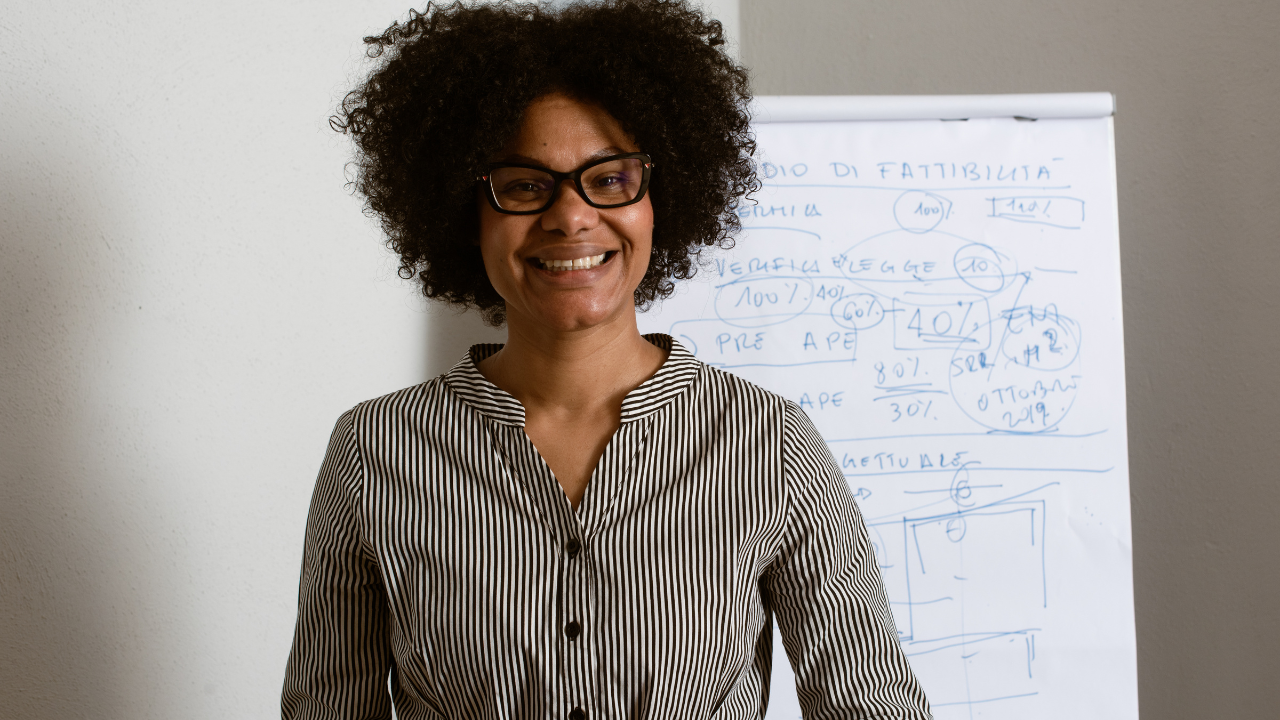 DIO DI FATTIBILITÀ
100% 110%
VERIFICA LEGGE 10
100% 40% 60% 40%
PRE APE
80% SRL
APE 30% OTTOBRE
2019
GETTUALE